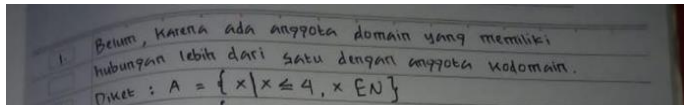 1. Belum, karena ada anggota domain yang memiliki
hubungan lebih dari satu dengan anggota kodomain.
Diket : A = { x | x ≤ 4, x ∈ N }